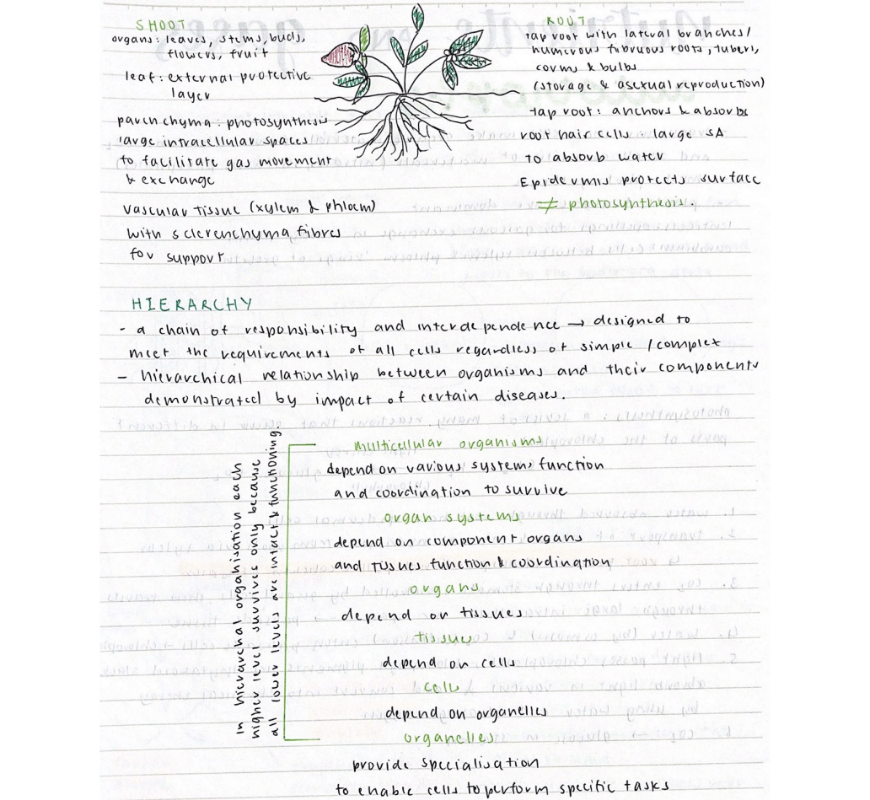 SHOOT
organs: leaves, stems, buds,
flowers, fruit
leaf: external protective
layer
parenchyma: photosynthesis
large intracellular spaces
to facilitate gas movement
& exchange
vascular tissue (xylem & phloem)
with sclerenchyma fibres
for support
ROOT
tap root with lateral branches/
numerous fibruous roots, tubers,
corms & bulbs
(storage & asexual reproduction)
tap root: anchors & absorbs
root hair cells: large SA
to absorb water
Epidermis protects surface
≠ photosynthesis.
HIERARCHY
- a chain of responsibility and interdependence → designed to
meet the requirements of all cells regardless of simple/complex
- hierarchical relationship between organisms and their components
demonstrated by impact of certain diseases.
in hierarchal organisation each
higher level survives only because
all lower levels are intact & functioning
multicellular organisms
depend on various systems function
and coordination to survive
organ systems
depend on component organs
and tissues function & coordination
organs
depend on tissues
tissues
depend on cells
cells
depend on organelles
organelles
provide specialisation
to enable cells to perform specific tasks